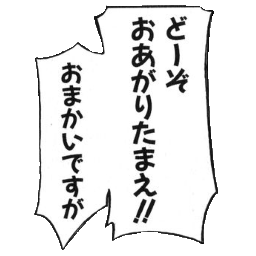 どーぞ
おあがりたまえ!!
おまかいですが